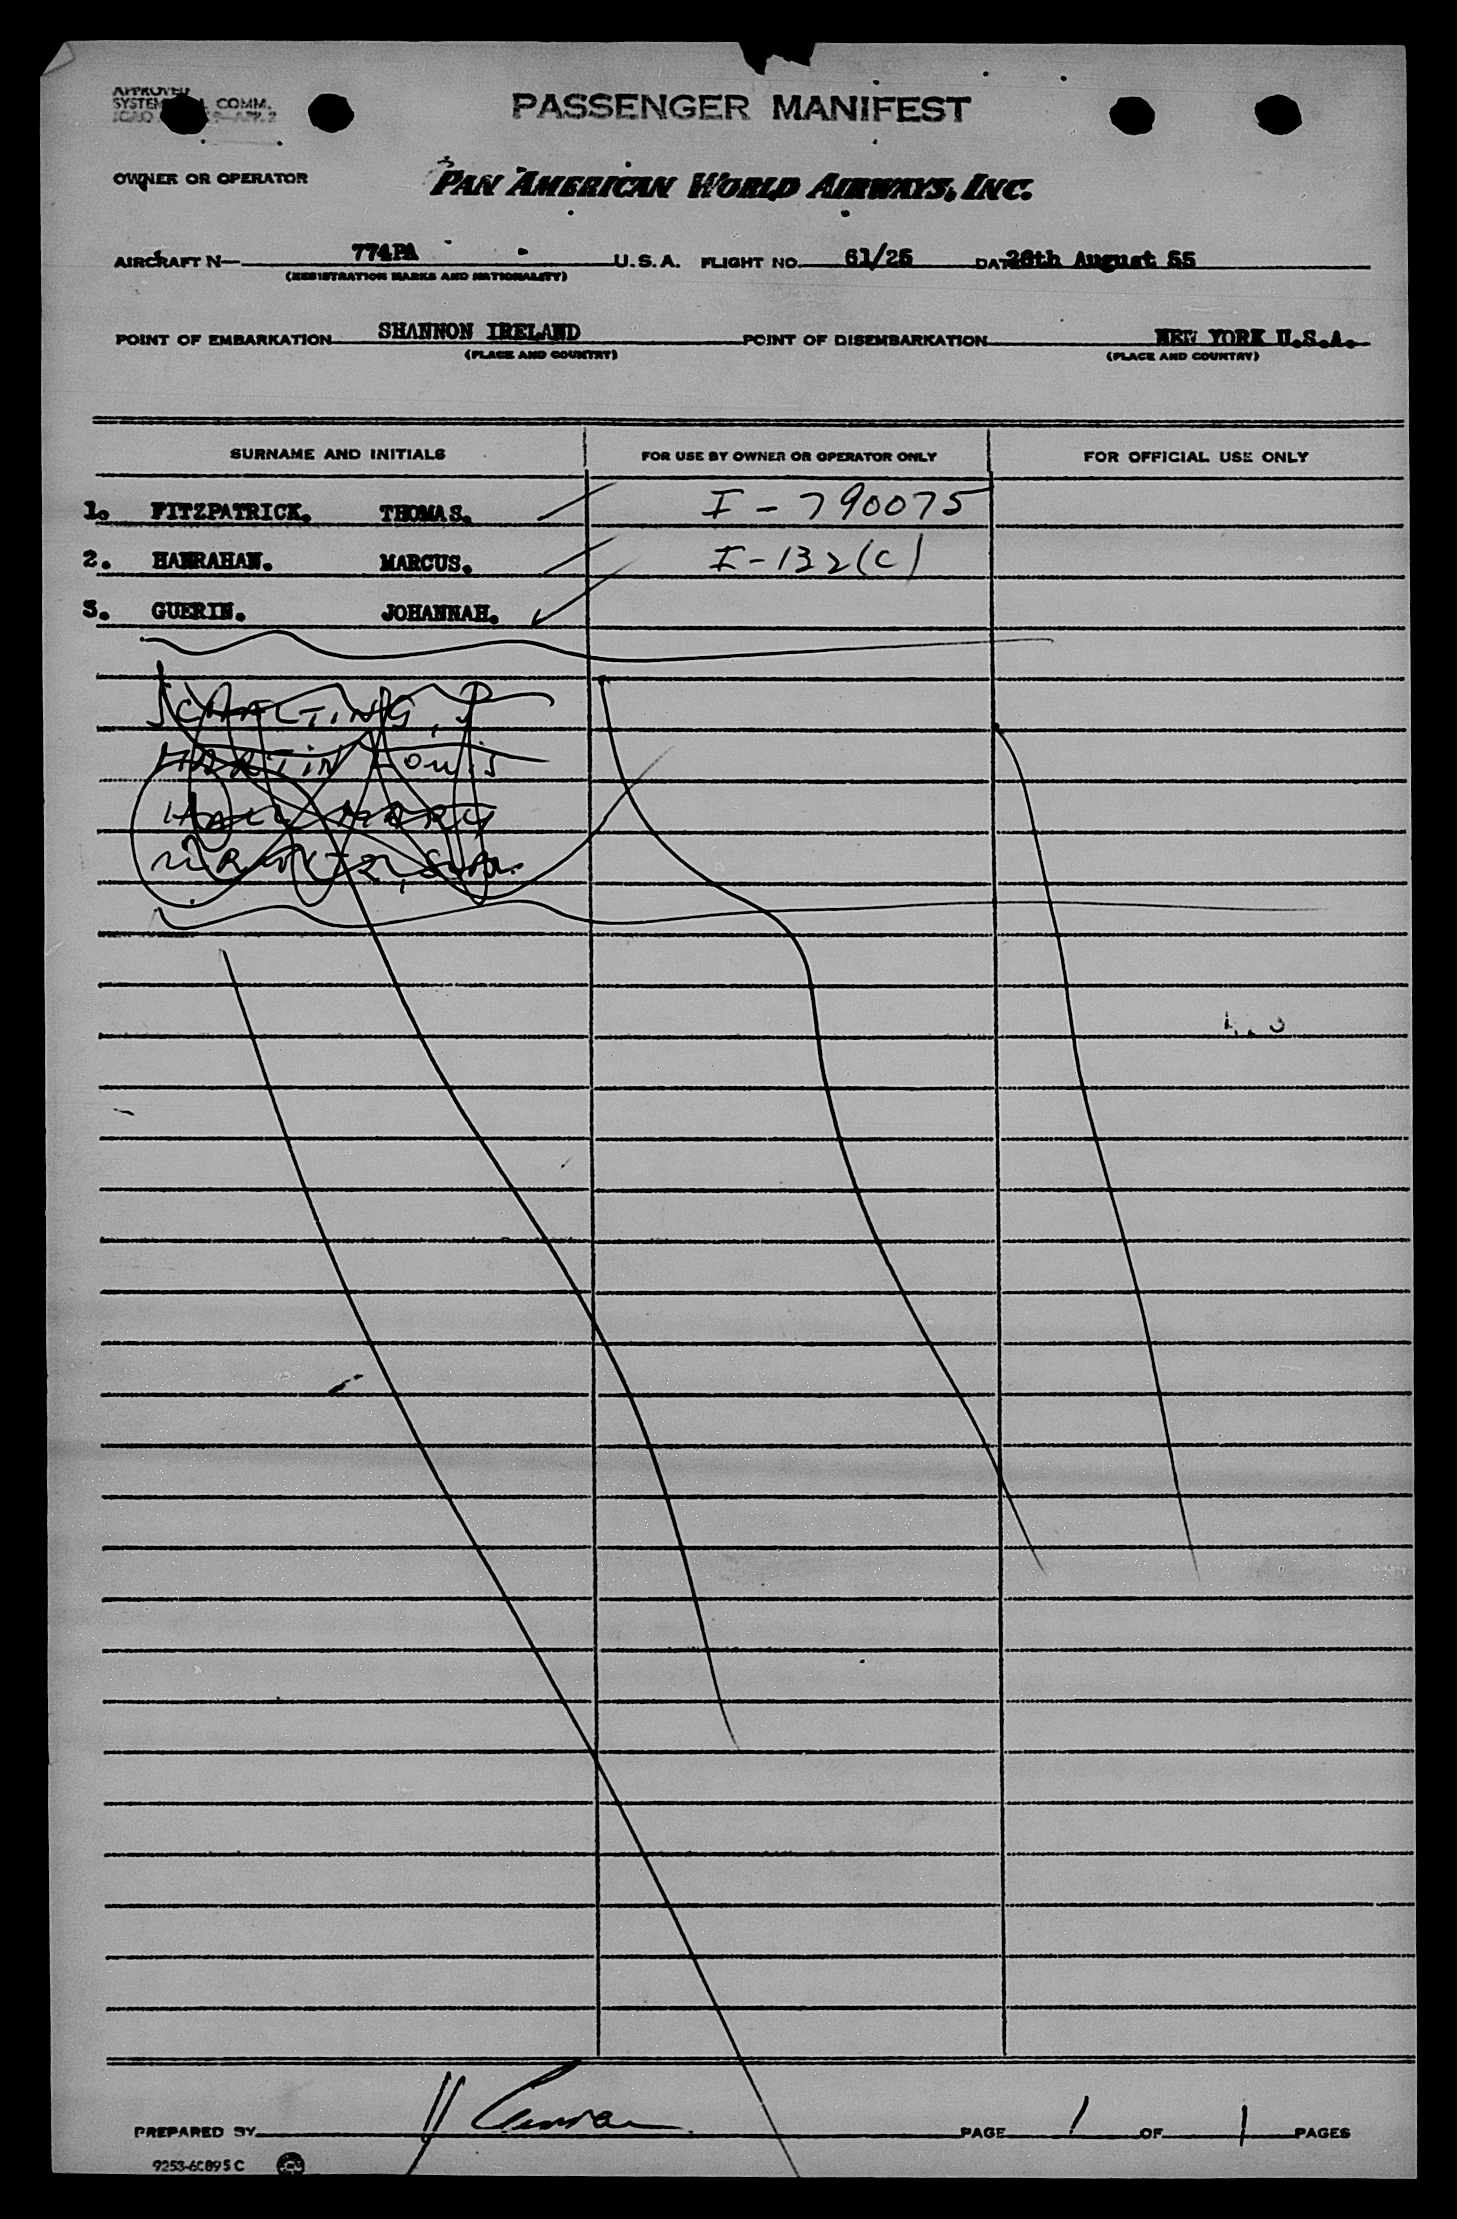 APPROVED
COMM.
PASSENGER MANIFEST
OWNER OR OPERATOR PAN AMERICAN WORLD AIRWAYS, INC.
AIRCRAFT N— 774PA U.S.A. FLIGHT NO. 61/25 DAT 26th August 55
(REGISTRATION MARKS AND NATIONALITY)
POINT OF EMBARKATION SHANNON IRELAND POINT OF DISEMBARKATION NEW YORK U.S.A.
(PLACE AND COUNTRY) (PLACE AND COUNTRY)
SURNAME AND INITIALS FOR USE BY OWNER OR OPERATOR ONLY FOR OFFICIAL USE ONLY
1. FITZPATRICK. THOMAS. I - 790075
2. HANRAHAN. MARCUS. I - 132(C)
3. GUERIN. JOHANNAH.
MARTIN LOUIS
HALL MARY
PREPARED BY PAGE 1 OF 1 PAGES
9253-6C895C